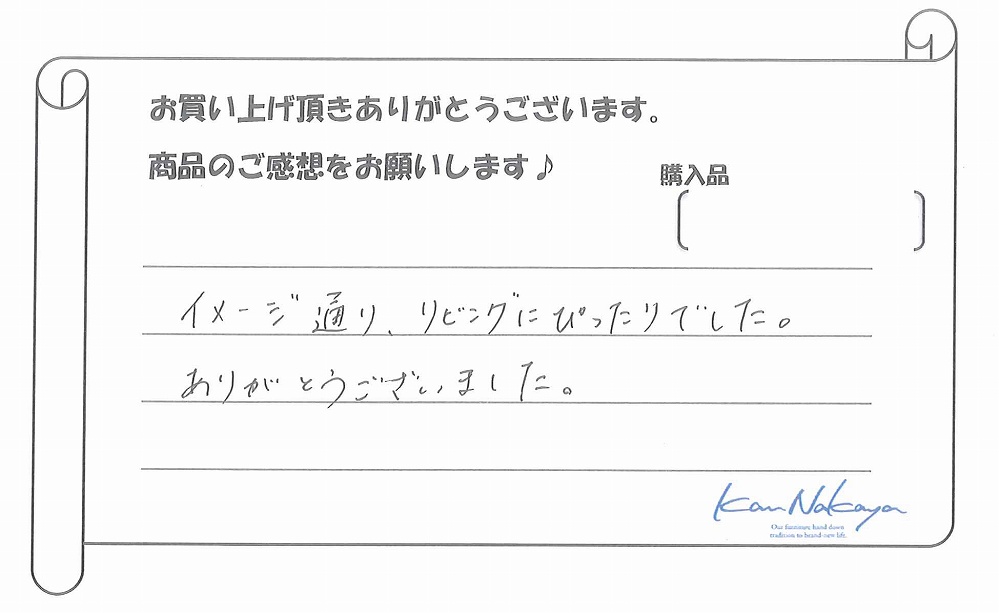 お買い上げ頂きありがとうございます。
商品のご感想をお願いします♪
購入品
イメージ通り、リビングにぴったりでした。
ありがとうございました。
Kan Nakaya
Our furniture hand down
tradition to brand-new life.